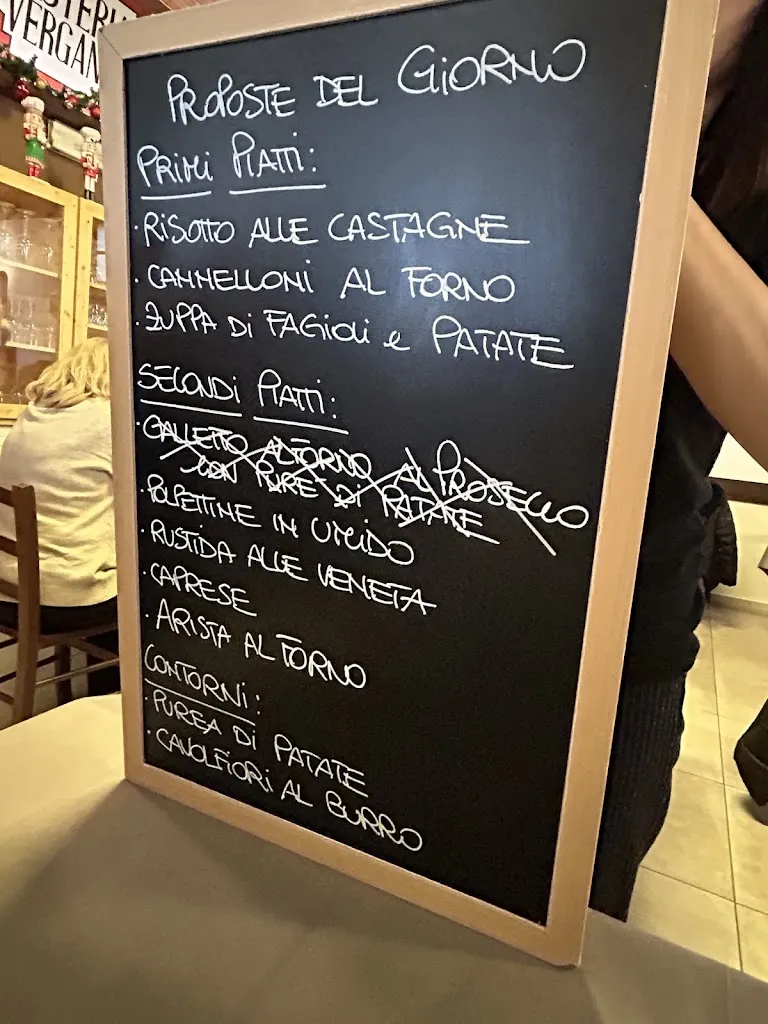 OSTERI
VERGAN
PROPOSTE DEL GIORNO
PRIMI PIATTI:
· RISOTTO ALLE CASTAGNE
· CANNELLONI AL FORNO
· ZUPPA Di FAGiOLi e PATATE
SECONDI PIATTI:
· GALLETTO AL FORNO AL PROSECCO
CON PURE' Di PATATE
· POLPETTINE IN UMIDO
· RUSTIDA ALLE VENETA
· CAPRESE
· ARISTA AL FORNO
CONTORNI:
· PUREA DI PATATE
· CAVOLFIORI AL BURRO